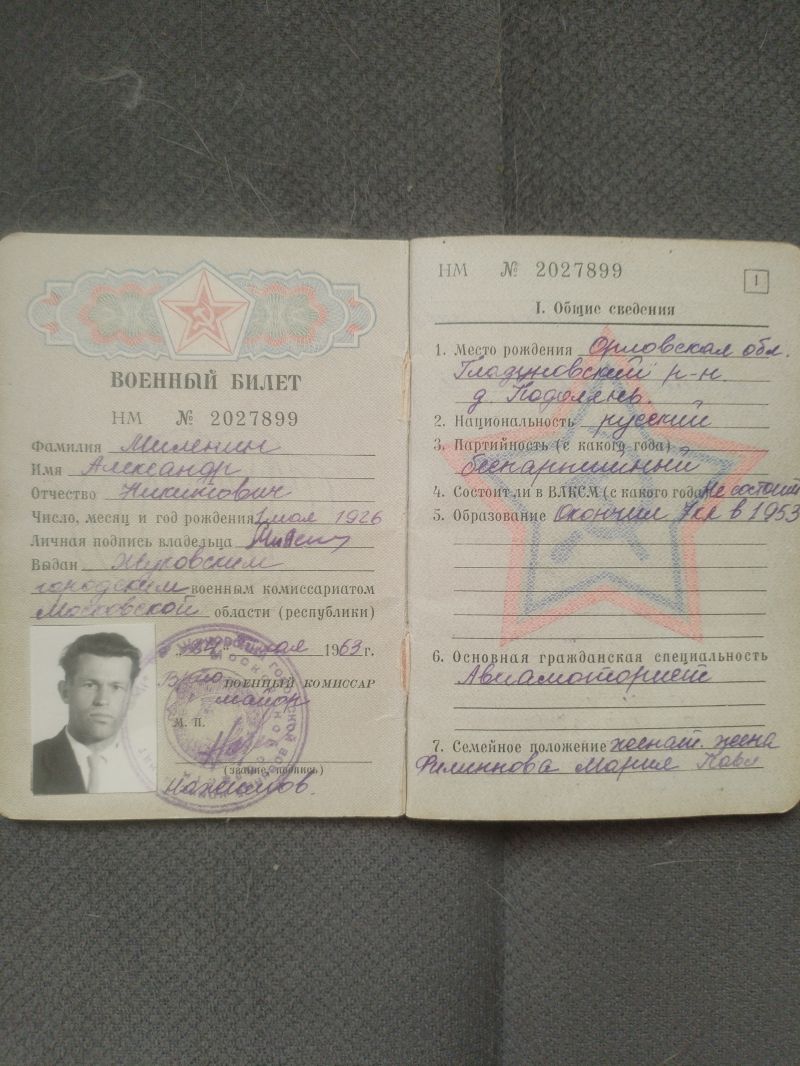 ВОЕННЫЙ БИЛЕТ
НМ № 2027899
Фамилия Миленин
Имя Александр
Отчество Никитович
Число, месяц и год рождения 1 мая 1926
Личная подпись владельца
Выдан Жуковским
городским военным комиссариатом
Московской области (республики)
мая 1963 г.
Врио ВОЕННЫЙ КОМИССАР
майор
М. П.
(звание, подпись)
НМ № 2027899
1
I. Общие сведения
1. Место рождения Орловская обл.
р-н.
д. Подолянь.
2. Национальность русский
3. Партийность (с какого года)
беспартийный
4. Состоит ли в ВЛКСМ (с какого года) Не состоит
5. Образование Окончил 7 кл в 1953
6. Основная гражданская специальность
Авиамоторист
7. Семейное положение женат. жена
Мария Павл